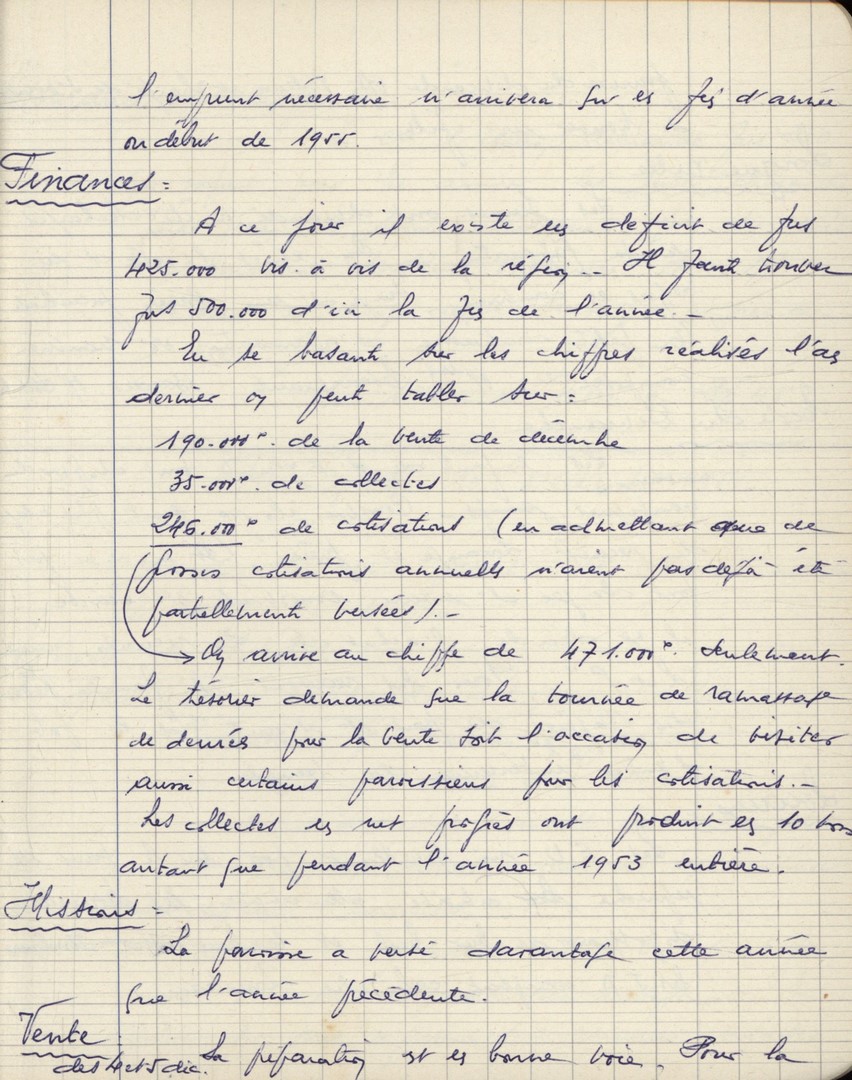 l'emprunt nécessaire n'arrivera qu'en fin d'année
ou début de 1955.
Finances =
A ce jour il existe un déficit de frs
425.000 vis à vis de la région -- Il faut trouver
frs 500.000 d'ici la fin de l'année. -
En se basant sur les chiffres réalisés l'an
dernier on peut tabler sur =
190.000 de la vente de décembre
35.000 de collectes
246.000 de cotisations (en admettant que de
grosses cotisations annuelles n'aient pas déjà été
partiellement versées). -
→ On arrive au chiffre de 471.000 seulement.
Le trésorier demande que la tournée de ramassage
de denrées pour la vente soit l'occasion de visiter
aussi certains paroissiens pour les cotisations. -
Les collectes en net progrès ont produit en 10 mois
autant que pendant l'année 1953 entière.
Missions =
La paroisse a versé davantage cette année
que l'année précédente.
Vente
des 4 et 5 dic. La préparation est en bonne voie. Pour la